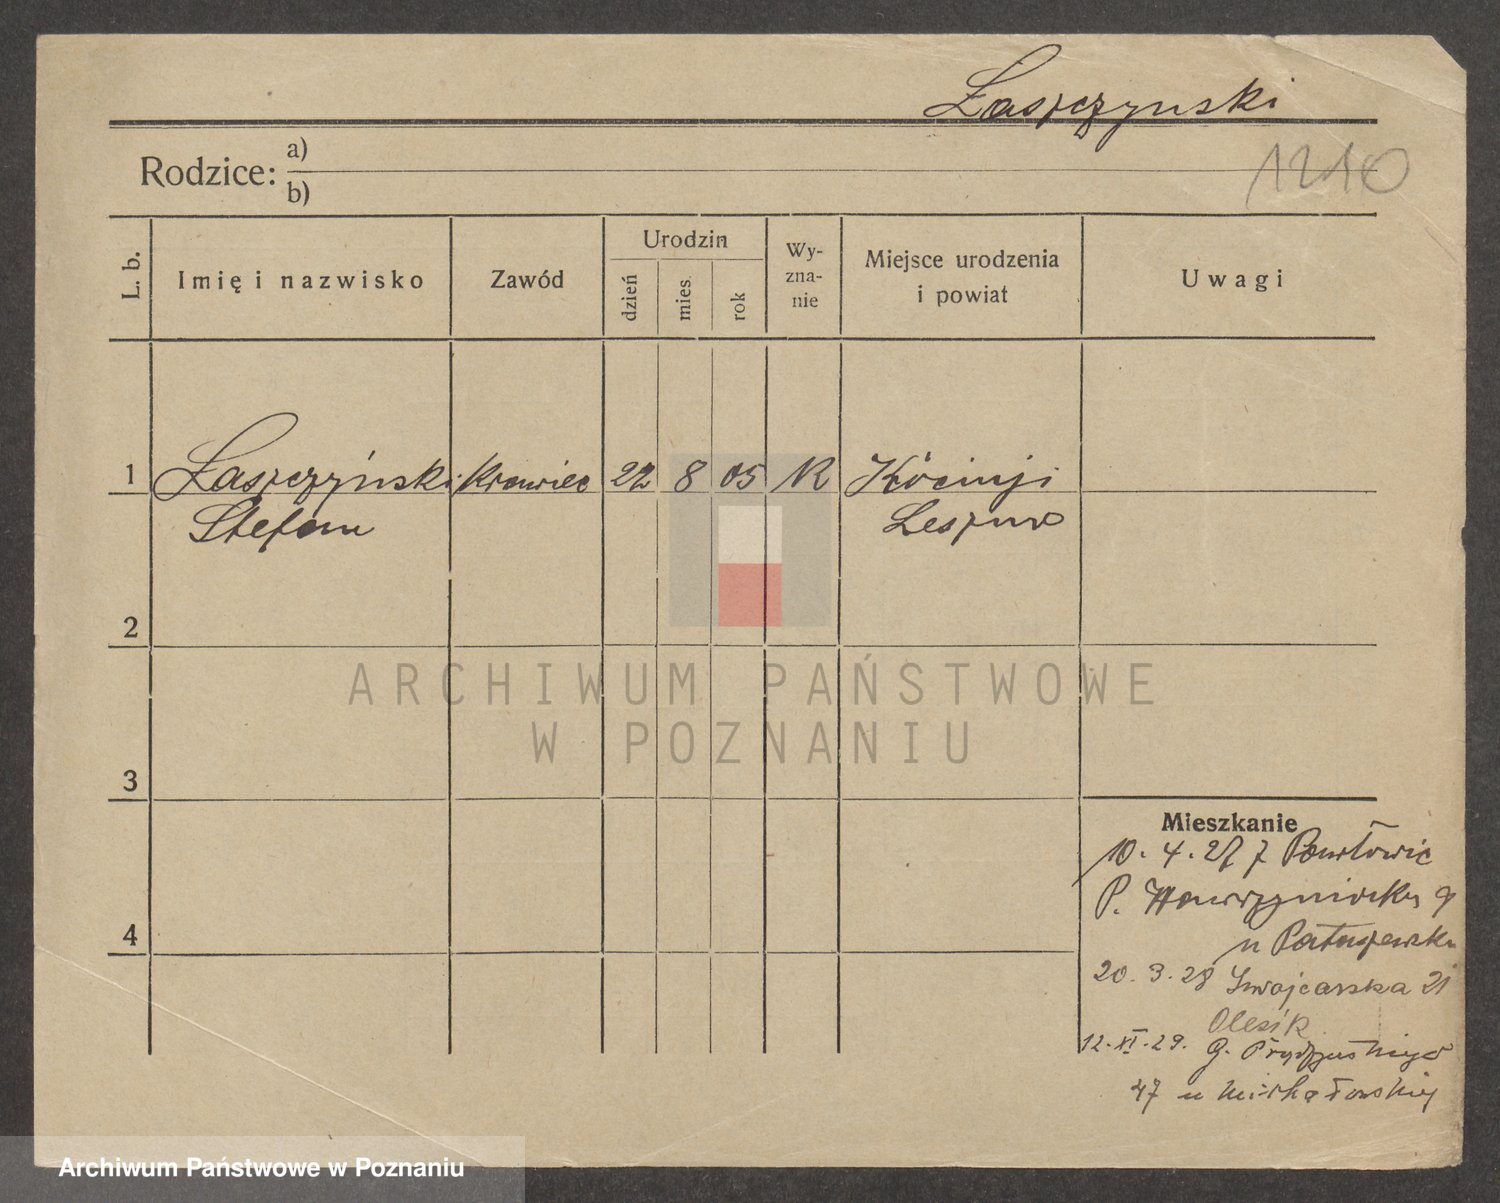 Łaszczynski
1210
Rodzice: a)
b)
L. b.
Imię i nazwisko
Zawód
Urodzin
dzień
mies.
rok
Wy-
zna-
nie
Miejsce urodzenia
i powiat
Uwagi
1 Łaszczyński Krawiec 22 8 05 K
Stefan Leszno
2
3
4
ARCHIWUM PAŃSTWOWE
W POZNANIU
Mieszkanie
10. 4. 27 z Pawłowic
P. Wawrzyniocka 9
u Pataszewska
20. 3. 28 Szwajcarska 21
Olesik
12. XI. 29. G.
47 u Michałowskiej
Archiwum Państwowe w Poznaniu